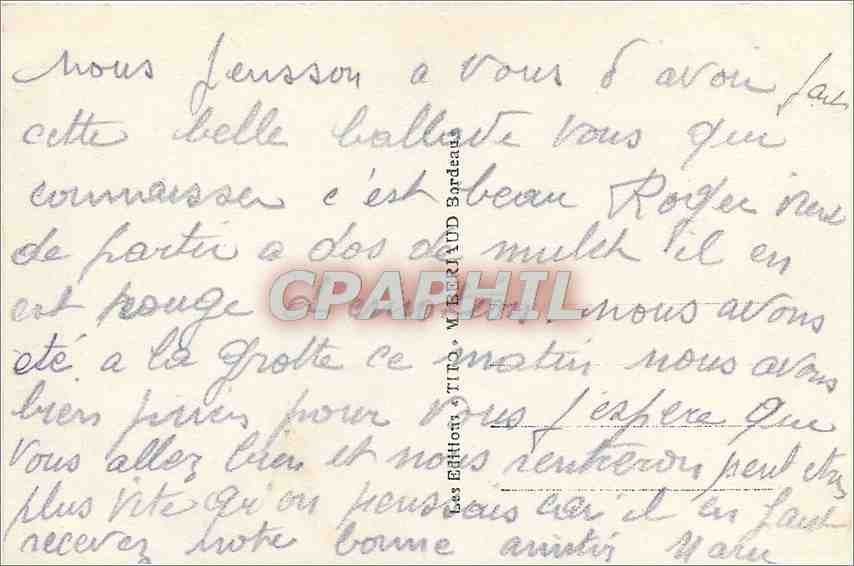 nous pensson a vous d'avoir fait
cette belle ballade vous qui
connaisser c'est beau Roger vient
de partir a dos de mulet il en
est rouge nous avons
été a la grotte ce matin nous avons
bien priés pour vous j'espere que
vous allez bien et nous rentreron peut etre
plus vite qu'on penssais car il en faut
recevez notre bonne amitié
Les Editions « TITO » M. BERJAUD Bordeaux
CPAPHIL